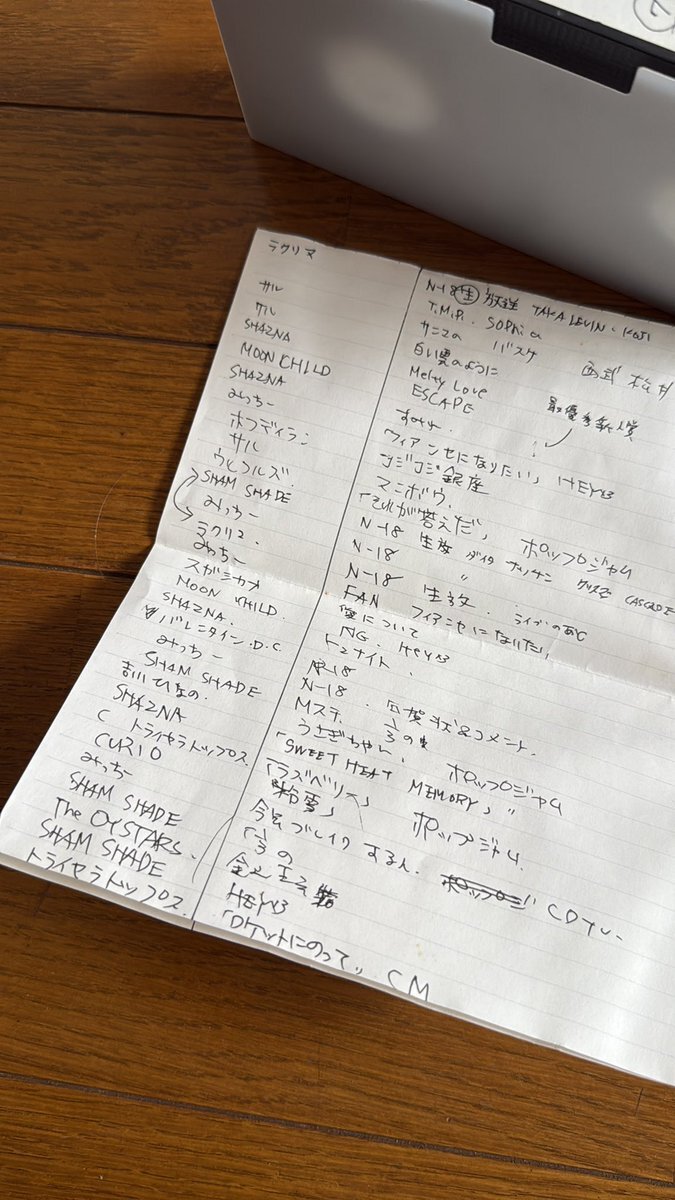 ラクリマ
N-18 生 放送 TAKA LEVIN・KOJI
サル T.M.R. SOPHIA
ケル サニスの バスケ
SHAZNA 白い雲のように
MOON CHILD Melty Love
SHAZNA ESCAPE 最優秀新人賞
みっちー すみれ
ホフディラン フィアンセになりたい」 HEY×3
サル ジジジ銀座
ウルフルズ. マニホウ
SHAM SHADE 「それが答えだ」 ポップジャム
みっちー N-18 生放
ラクリマ. N-18 〃 CASCADE
みっちー N-18 生放. ライブのあと
スガシカオ FAN フィアンセになりたい
MOON CHILD. 愛について
SHAZNA. NG. HEY×3
バレンタイン.D.C. トゥナイト.
みっちー N-18
SHAM SHADE N-18. 年賀状&コメント.
吉川ひなの. Mステ. 1/3の
SHAZNA うさぎちゃん. ポップジャム
C トライセラトップス 「SWEET HEAT MEMORY」 〃
CURIO 「ラズベリー」
みっちー 「粉雪」 ポップジャム.
SHAM SHADE 今年ブレイクする人. CDTV.
The OYSTARS. 「1/3の
SHAM SHADE HEY×3
トライセラトップス. 「ロケットにのって」 CM